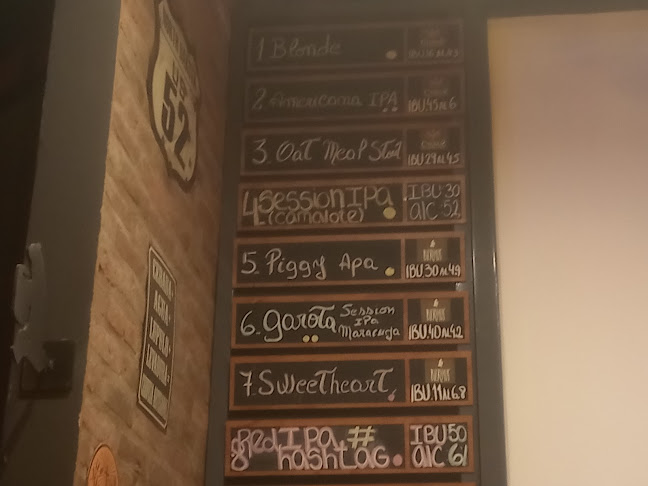 1 Blonde
2. Americana IPA
IBU 45 al 6
3. Oat Meal Stout
IBU 29 al 4.5
4 Session IPA
(camalote)
IBU 30
alc 5.2
5. Piggy Apa
IBU 30 al 4.9
6. garota Session
IPA
Maracuja
IBU 40 al 4.2
7. Sweetheart
IBU 11 al 6.8
8 Red IPA #
hashtag
IBU 50
alc 6,1
52